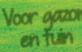 Voor gazon
en tuin